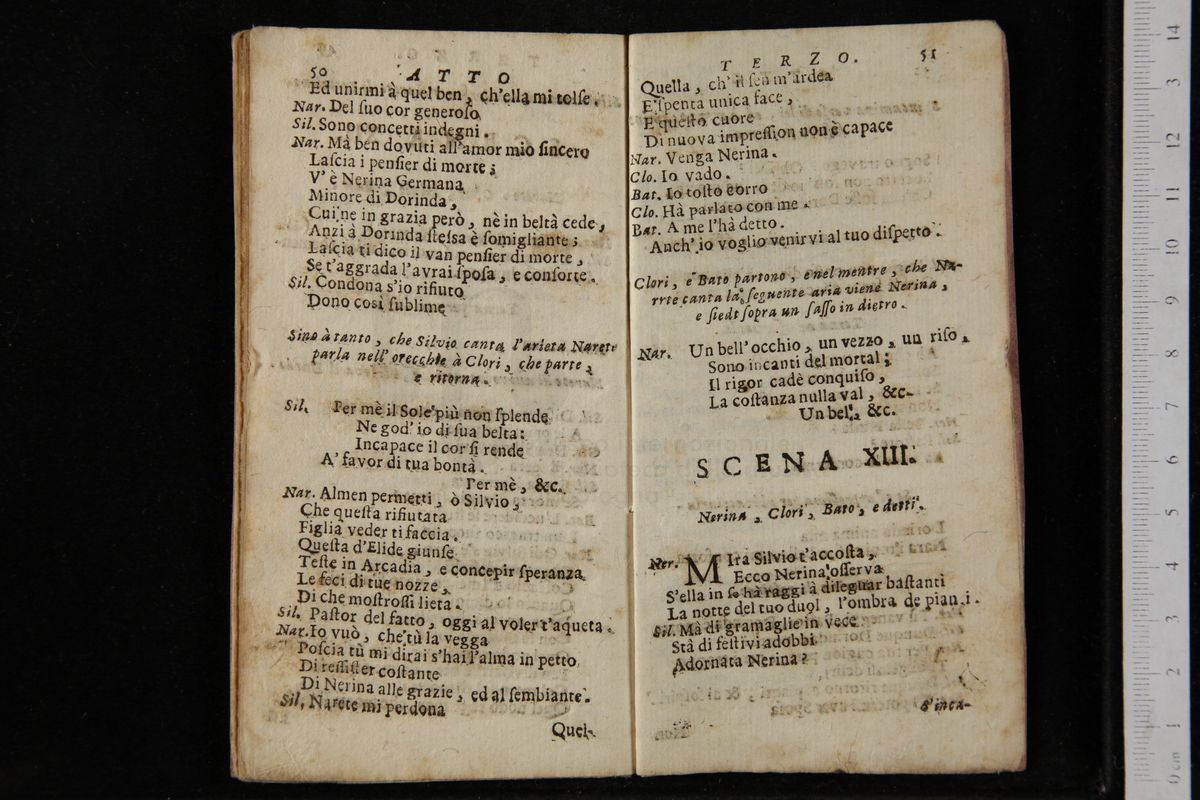 50 ATTO
Ed unirmi à quel ben, ch'ella mi tolse.
Nar. Del ſuo cor generoſo
Sil. Sono concetti indegni.
Nar. Mà ben dovuti all'amor mio ſincero
Laſcia i penſier di morte;
V' è Nerina Germana
Minore di Dorinda,
Cui ne in grazia però, nè in beltà cede,
Anzi à Dorinda ſteſsa è ſomigliante;
Laſcia ti dico il van penſier di morte,
Se t'aggrada l'avrai ſpoſa, e conſorte.
Sil. Condona s'io rifiuto
Dono così ſublime
Sino à tanto, che Silvio canta l'arieta Narete
parla nell' orecchie à Clori, che parte,
e ritorna.
Sil. Per mè il Sole più non ſplende
Ne god' io di ſua belta:
Incapace il cor ſi rende
A' favor di tua bontà.
Per mè, &c.
Nar. Almen permetti, ò Silvio,
Che queſta rifiutata
Figlia veder ti faccia.
Queſta d'Elide giunſe
Teſte in Arcadia, e concepir ſperanza
Le feci di tue nozze,
Di che moſtroſſi lieta.
Sil. Paſtor del fatto, oggi al voler t'aqueta.
Nar. Io vuò, che tù la vegga
Poſcia tù mi dirai s'hai l'alma in petto
Di reſſiſter coſtante
Di Nerina alle grazie, ed al ſembiante.
Sil. Narete mi perdona
Quel-
TERZO. 51
Quella, ch' il ſen m'ardea
E' ſpenta unica face,
E queſto cuore
Di nuova impreſſion non è capace
Nar. Venga Nerina.
Clo. Io vado.
Bat. Io toſto corro
Clo. Hà parlato con me.
Bat. A me l'hà detto.
Anch' io voglio venirvi al tuo diſpetto.
Clori, e Bato partono, e nel mentre, che Na-
rrte canta la ſeguente aria viene Nerina,
e ſiedt ſopra un ſaſſo in dietro.
Nar. Un bell' occhio, un vezzo, un riſo,
Sono incanti del mortal;
Il rigor cadè conquiſo,
La coſtanza nulla val, &c.
Un bel, &c.
SCENA XIII.
Nerina, Clori, Bato, e detti.
Ner. MIra Silvio t'accoſta,
Ecco Nerina oſſerva
S'ella in ſe hà raggi à dileguar baſtanti
La notte del tuo duol, l'ombra de pianti.
Sil. Mà di gramaglie in vece
Stà di feſtivi adobbi
Adornata Nerina?
S'inca-
0 cm 1 2 3 4 5 6 7 8 9 10 11 12 13 14